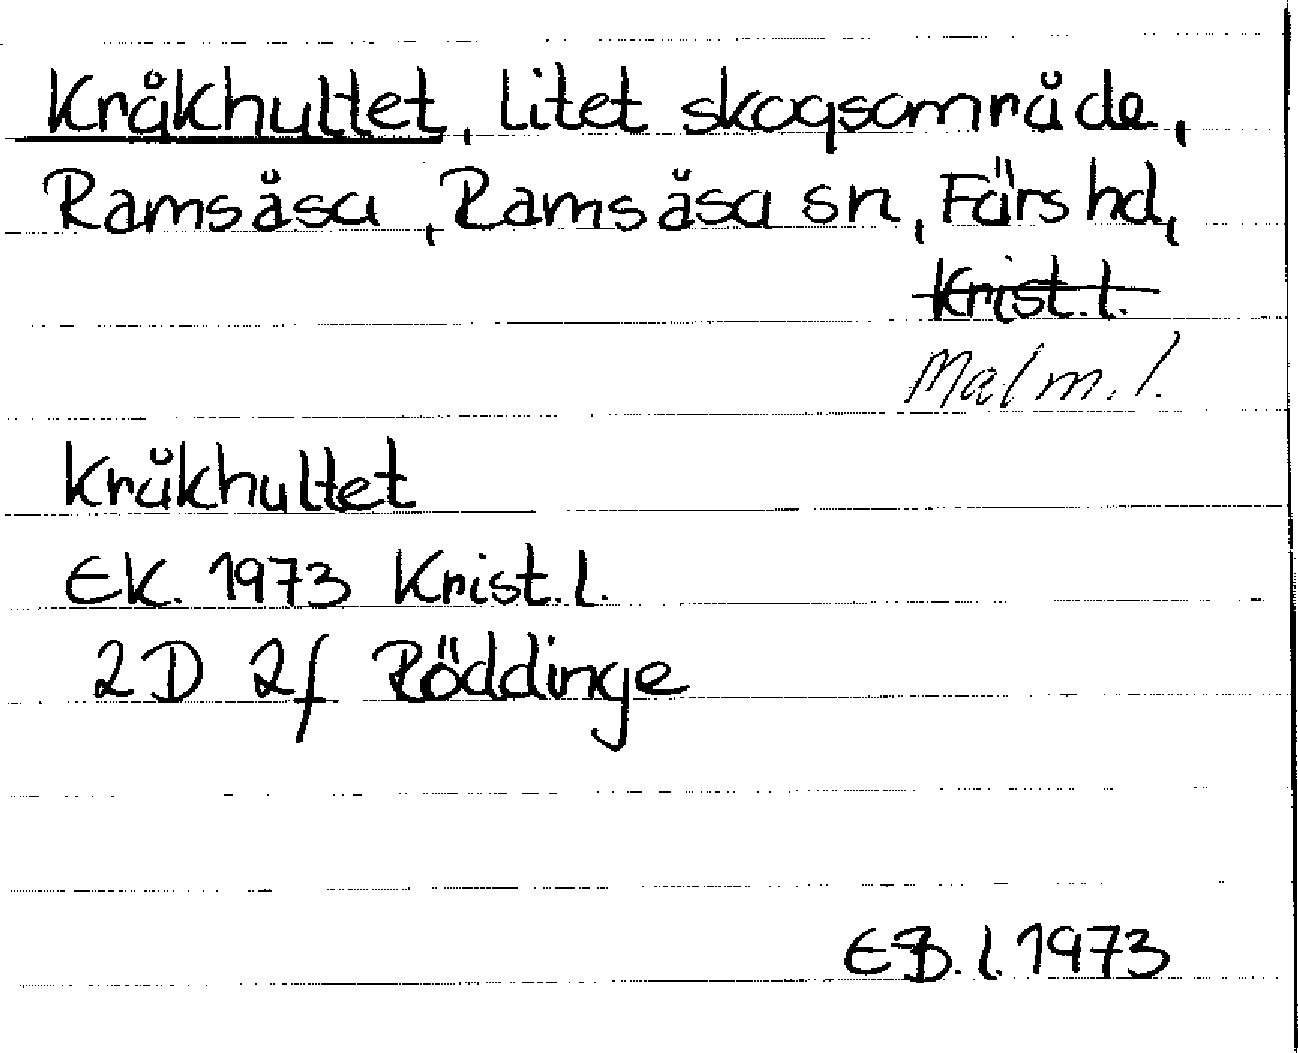 Kråkhultet, litet skogsområde,
Ramsåsa, Ramsåsa sn, Färs hd,
Krist. l.
Malm. l.
Kråkhultet
EK. 1973 Krist. l.
2D 2f Röddinge
EB. l. 1973